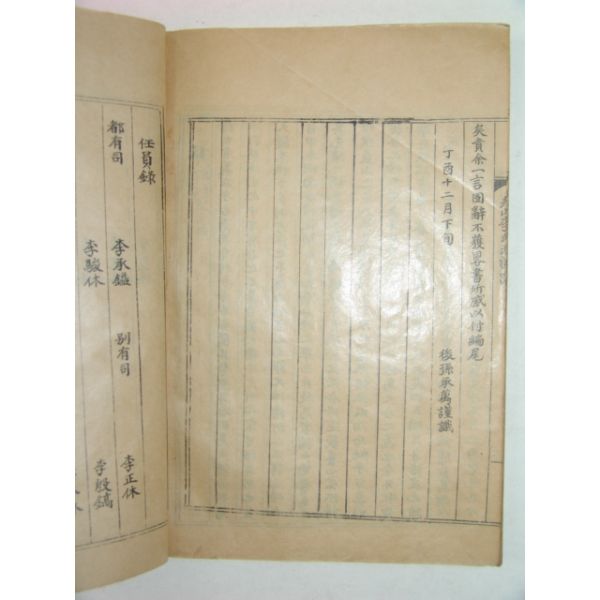 矣責余一言固辭不獲畧書所感以付編尾
丁酉十二月下旬
後孫承萬謹識
任員錄
都有司
李承鎰
別有司
李正休
李駿休
李殷鎬